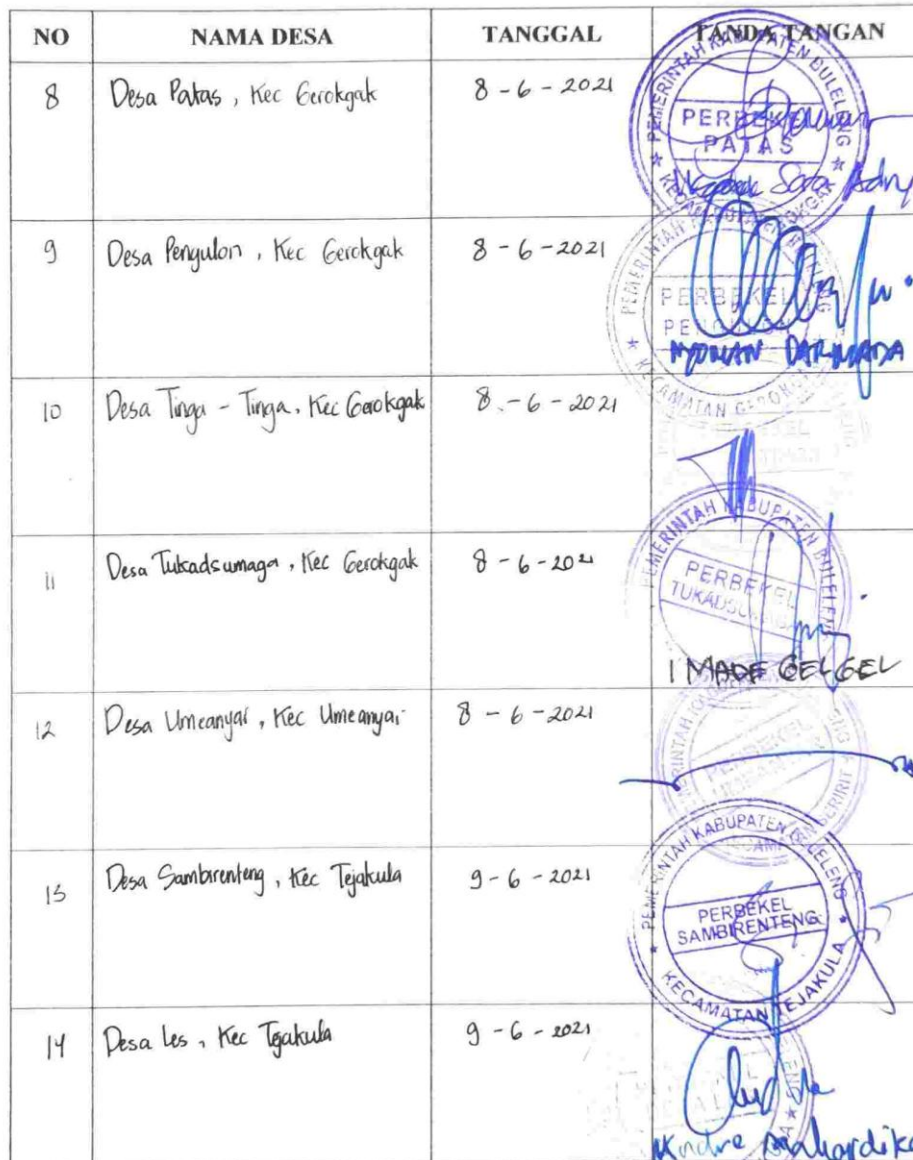 NO NAMA DESA TANGGAL TANDA TANGAN
8 Desa Patas, Kec Gerokgak 8-6-2021
PEMERINTAH KABUPATEN BULELENG
PERBEKEL
PATAS
KECAMATAN GEROKGAK
9 Desa Pengulon, Kec Gerokgak 8-6-2021
PEMERINTAH KABUPATEN BULELENG
PERBEKEL
PENGULON
NYOMAN DARMADA
KECAMATAN GEROKGAK
10 Desa Tinga - Tinga, Kec Gerokgak 8-6-2021
11 Desa Tukadsumaga, Kec Gerokgak 8-6-2021
PEMERINTAH KABUPATEN BULELENG
PERBEKEL
TUKADSUMAGA
I MADE GELGEL
12 Desa Umeanyar, Kec Umeanyar 8-6-2021
PERBEKEL
UMEANYAR
13 Desa Sambirenteng, Kec Tejakula 9-6-2021
PEMERINTAH KABUPATEN BULELENG
PERBEKEL
SAMBIRENTENG
KECAMATAN TEJAKULA
14 Desa Les, Kec Tejakula 9-6-2021
Mahardika